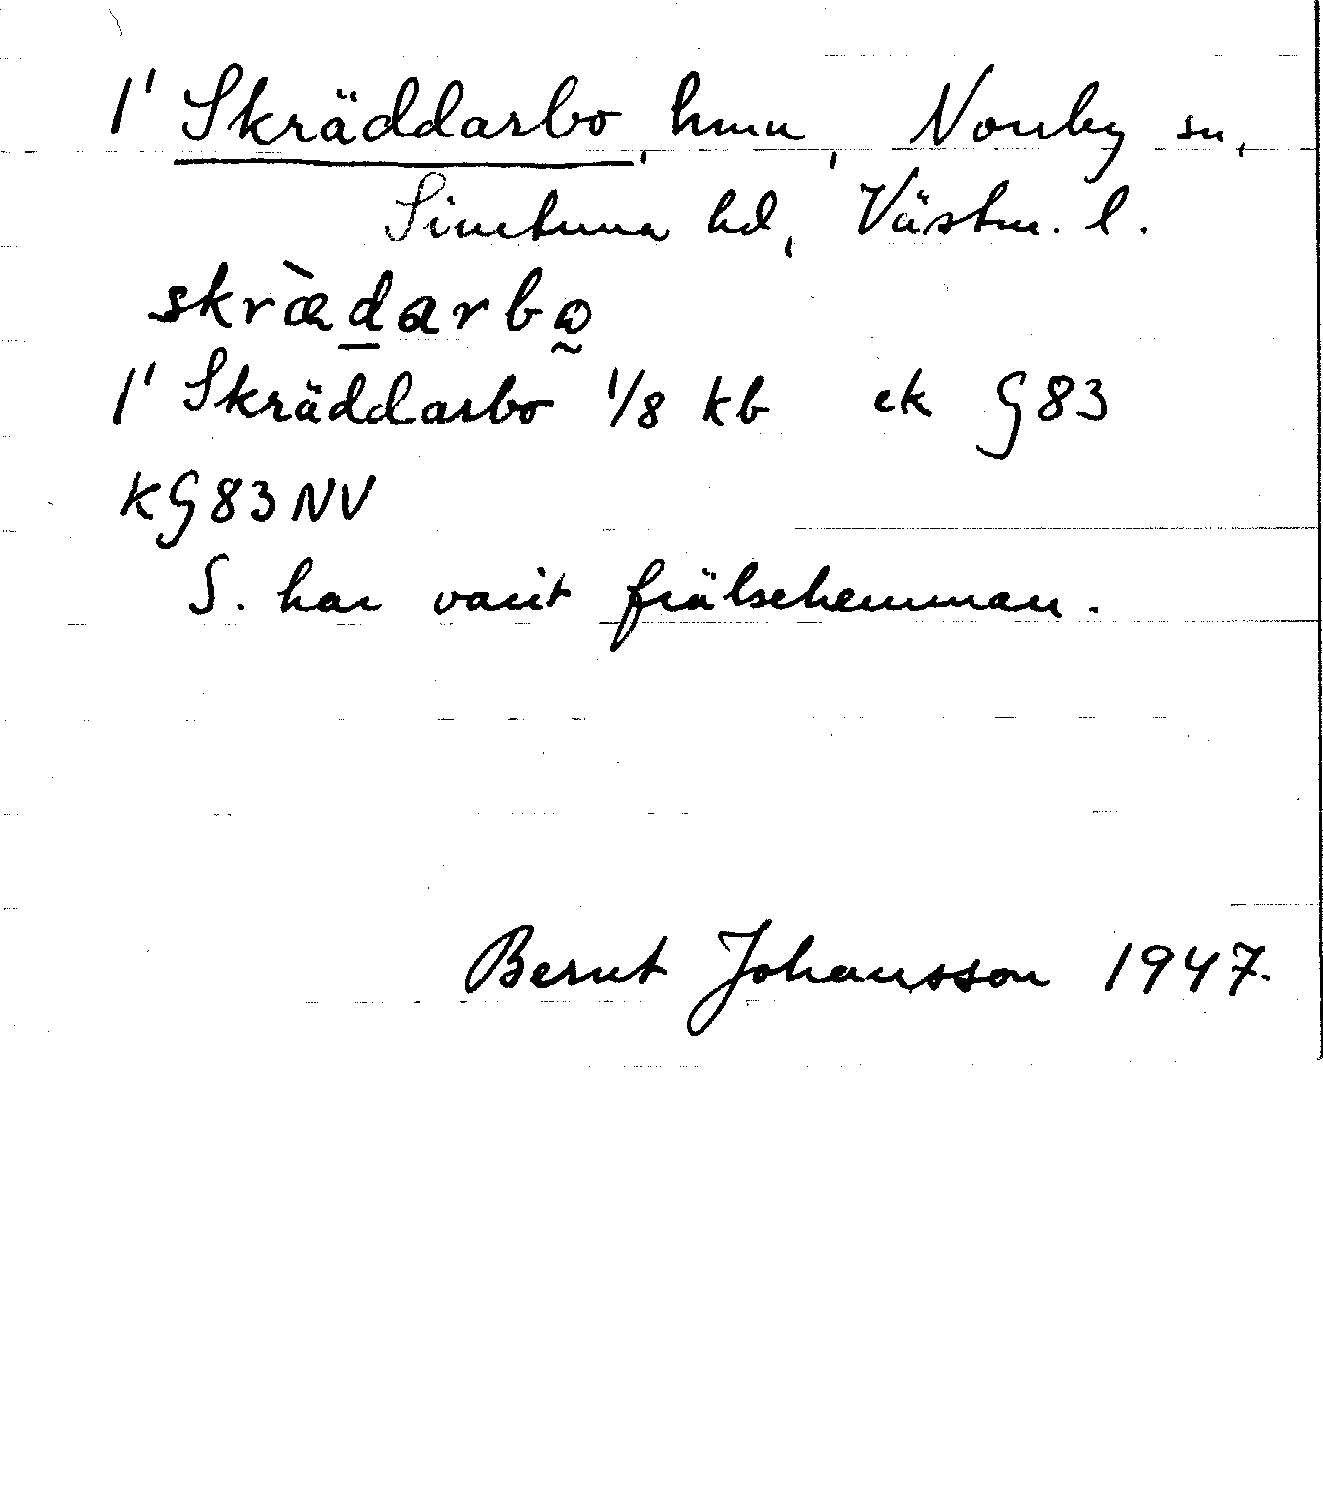 1' Skräddarbo, hmn, Norrby sn,
Simtuna hd, Västm. l.
skræ̀darbω
1' Skräddarbo 1/8 kb ek G83
kG83NV
S. har varit frälsehemman.
Bernt Johansson 1947.